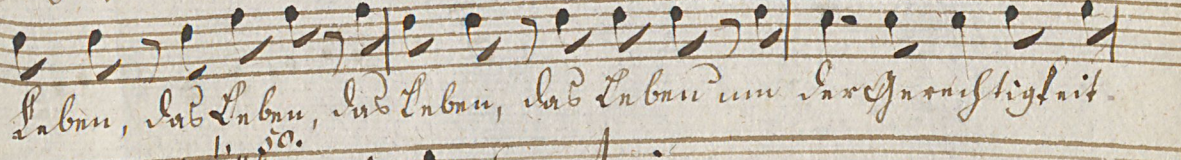 Leben, das Leben, das Leben, das Leben um der Gerechtigkeit